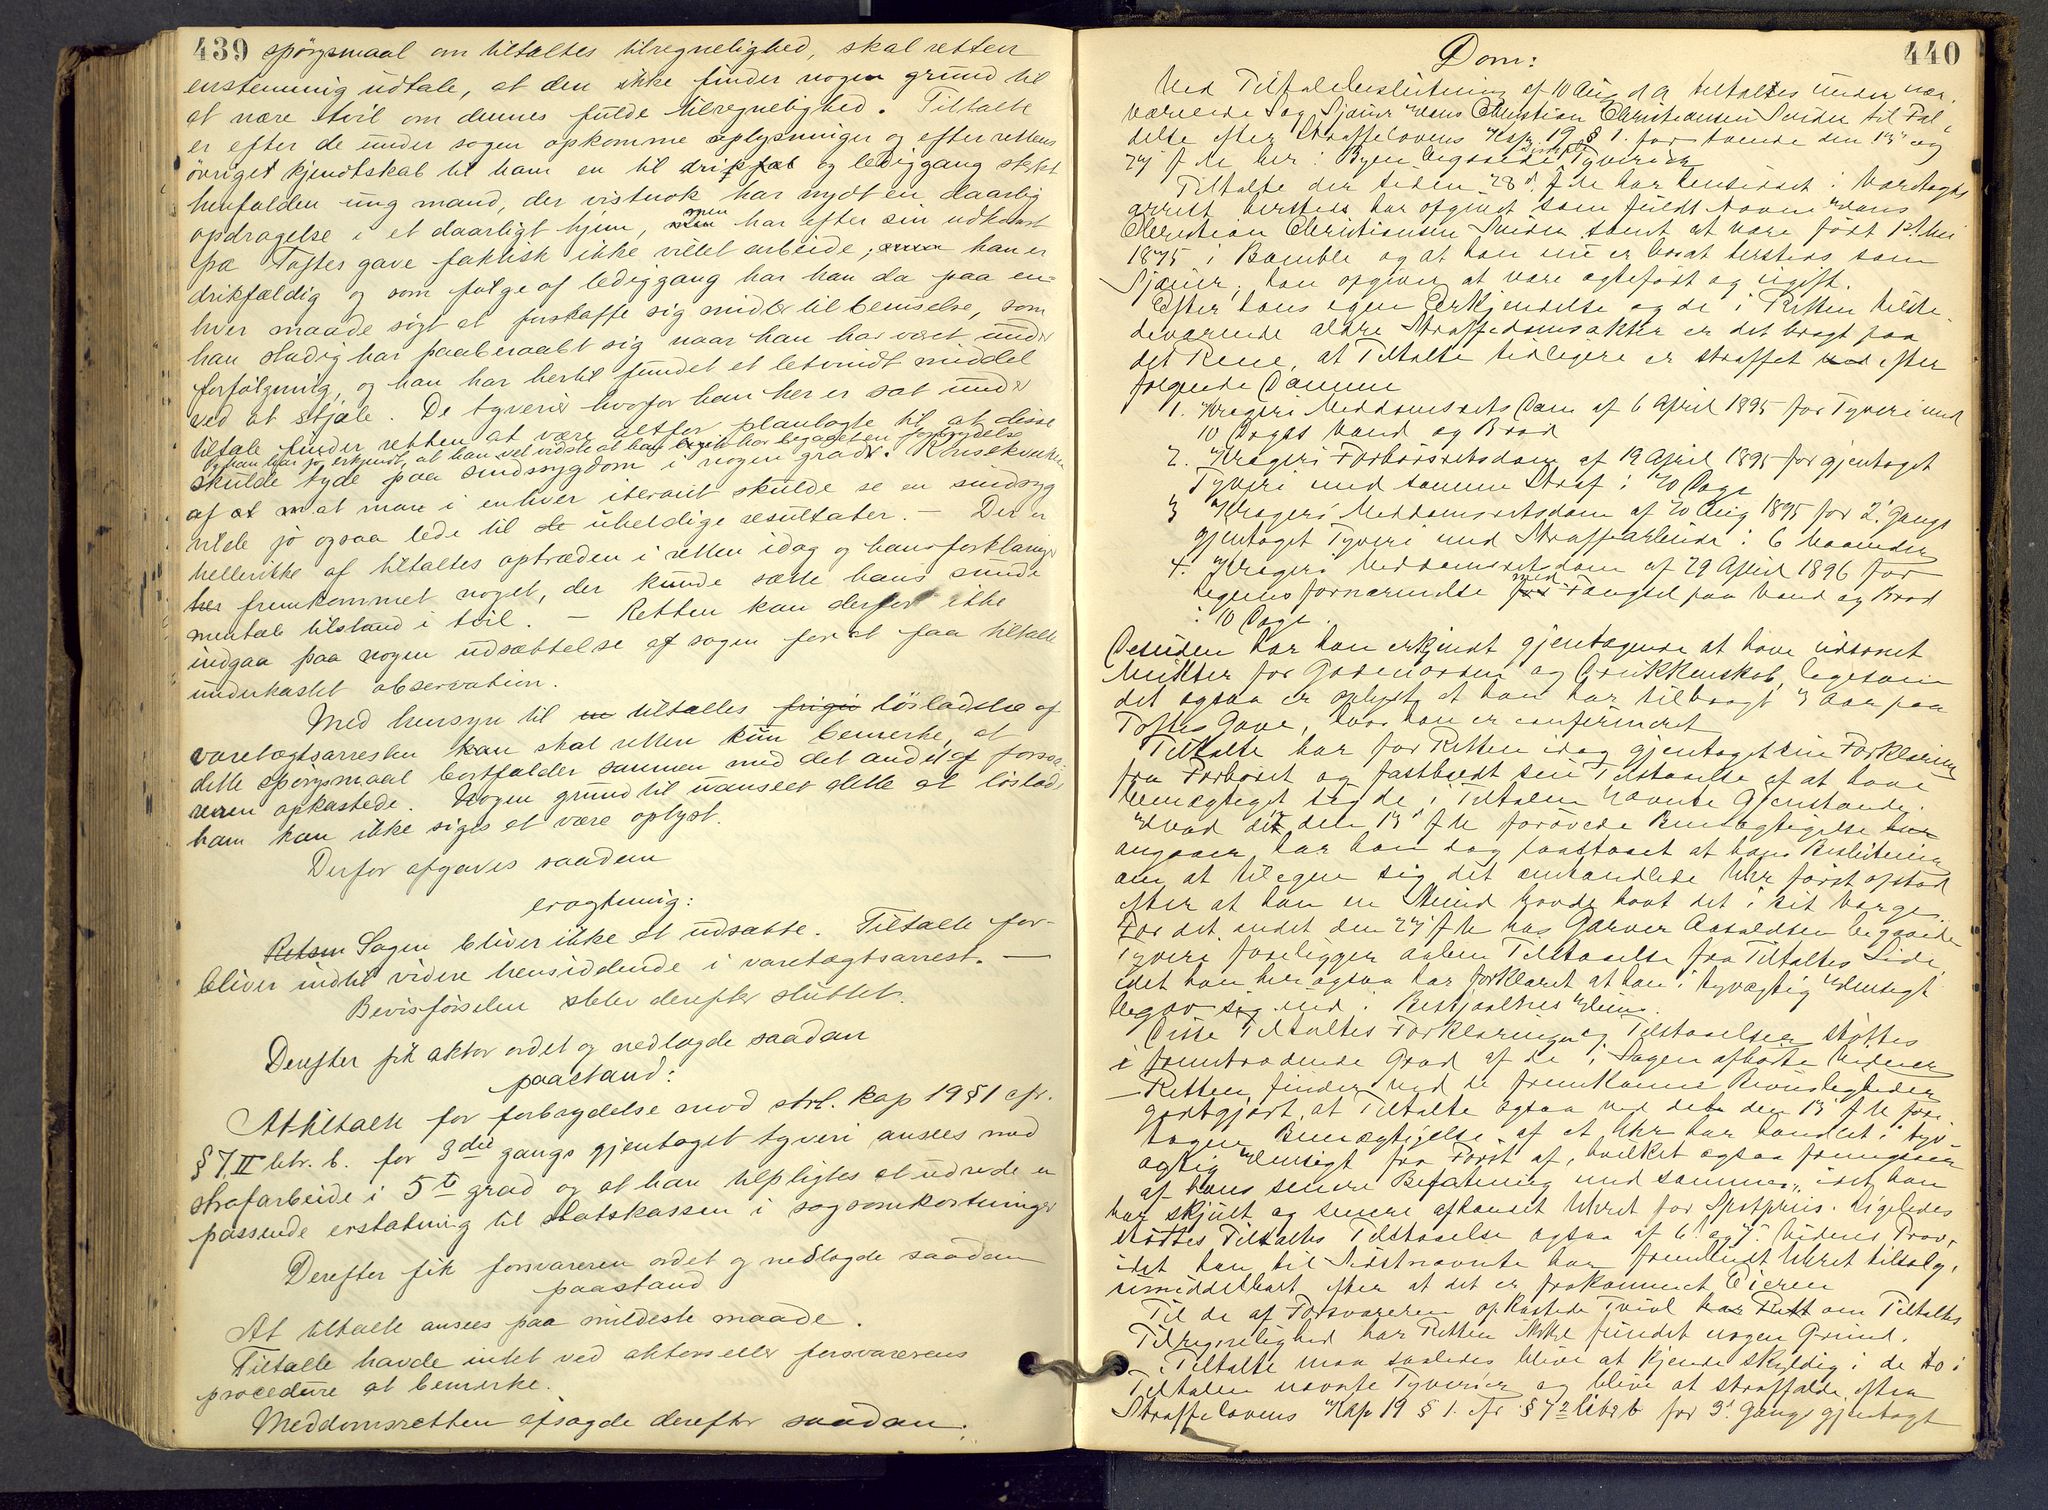 439 spörgsmaal om tiltaltes tilregnelighed, skal retten
enstemmig udtale, at den ikke finder nogen grund til
at nære tvil om dennes fulde tilregnelighed. Tiltalte
er efter de under sagen opkomne oplysninger og efter rettens
övriget kjendtskab til ham en til drik og lediggang sterkt
henfalden ung mand, der vistnok har nydt en daarlig
opdragelse i et daarligt hjem, men har efter sin udkomst
fra Toftes gave faktisk ikke villet arbeide; han er
drikfældig og som følge af lediggang har han da paa en-
hver maade sögt at forskaffe sig midler til beruselse, som
han stadig har paaberaabt sig naar han har været under
forfölgning, og han har hertil fundet et letvindt middel
ved at stjæle. De tyverier hvorfor han her er sat under
tiltale finder retten at være letter planlagte til at disse
og han har jo erkjendt, at han vel vidste at han har begaaet en forbrydelse
skulde tyde paa sindssygdom i nogen grad. Konsekvensen
af at man i enhver iterant skulde se en sindssyg
vilde jo ogsaa lede til uheldige resultater. — Der er
heller ikke af tiltaltes optræden i retten idag og hans forklaringer
her fremkommet noget, der kunde sætte hans sunde
mentale tilstand i tvil. — Retten kan derfor ikke
indgaa paa nogen udsættelse af sagen for at faa tiltalte
underkastet observation.
Med hensyn til tiltaltes frigiv lösladelse af
varetægtsarresten skal retten kun bemerke, at
dette spörgsmaal bortfalder sammen med det andet af forsva-
reren opkastede. Nogen grund til uanseet dette at löslade
ham kan ikke siges at være oplyst.
Derfor afgaves saadan
eragtning:
Retten Sagen bliver ikke at udsætte. Tiltalte for-
bliver indtil videre hensiddende i varetægtsarrest. —
Bevisförselen blev derefter sluttet.
Derefter fik aktor ordet og nedlagde saadan
paastand:
At tiltalte for forbrydelse mod strl. kap 19 § 1 cfr.
§ 7 II litr. b. for 3die gangs gjentaget tyveri ansees med
strafarbeide i 5te grad og at han tilpligtes at udrede en
passende erstatning til statskassen i sagsomkostninger
Derefter fik forsvareren ordet og nedlagde saadan
paastand
At tiltalte ansees paa mildeste maade.
Tiltalte havde intet ved aktors eller forsvarerens
procedure at bemerke.
Meddomsretten afsagde derefter saadan:
440
Dom:
Ved Tiltalebeslutning af 10 Aug d A tiltaltes under nær-
værende Sag Sjauer Hans Christian Christiansen Sinder til Fæl-
delse efter Straffelovens Kap 19 § 1. for tvende den 13 og
27 f M her i Byen begaaede simple Tyverier
Tiltalte der siden 28 f M har hensiddet i Varetægts-
arrest hersteds har opgivet som fuldt Navn Hans
Christian Christiansen Sinder samt at være født 12 Mai
1875 i Bamble og at han nu er bosat hersteds som
Sjauer; han opgiver at være ægtefødt og ugift.
Efter hans egen Erkjendelse og de i Retten tilste-
deværende ældre Straffedomsakter er det bragt paa
det Rene, at Tiltalte tidligere er straffet efter
følgende Domme
1. Kragerø Meddomsrets Dom af 6 April 1895 for Tyveri med
10 Dages Vand og Brød
2. Kragerø Forhørsretsdom af 19 April 1895 for gjentaget
Tyveri med samme Straf i 20 Dage
3 Kragerø Meddomsretsdom af 20 Aug 1895 for 2. Gangs
gjentaget Tyveri med Straffarbeide i 6 Maaneder
4. Kragerø Meddomsretsdom af 29 April 1896 for
Legemsfornærmelse med Fængsel paa Vand og Brød
i 10 Dage.
Desuden har han erkjendt gjentagende at have udsonet
Mulkter for Gadeuorden og Drukkenskab, ligesom
det ogsaa er oplyst at han har tilbragt 3 Aar paa
Toftes Gave, hvor han er confirmeret
Tiltalte har for Retten idag gjentaget sin Forklaring
fra Forhøret og fastholdt sin Tilstaaelse af at have
bemægtiget sig de i Tiltalen nævnte Gjenstande.
Hvad den den 13 f M forøvede Bemægtigelse
angaaer har han idag paastaaet at hans Beslutning
om at tilegne sig det omhandlede Uhr først opstod
efter at han en Stund havde havt det i sit Værge.
For det andet den 27 f M hos Garver Aasoldsen begaaede
Tyveri foreligger aaben Tilstaaelse fra Tiltaltes Side
idet han her ogsaa har forklaret at han i tyvagtig Hensigt
begav sig ind i Bestjaalnes Huus.
Disse Tiltaltes Forklaringer og Tilstaaelser støttes
i fremtrædende Grad af de i Sagen afhørte Vidner
— Retten finder ved de fremkomne Beviisligheder
godtgjort, at Tiltalte ogsaa ved den den 13 f M fore-
tagne Bemægtigelse af et Uhr har handlet i tyv-
agtig Hensigt fra Først af, hvilket ogsaa fremgaaer
af hans senere Befatning med samme, idet han
har skjult og senere afhændet Uhret for Spotpriis. Ligeledes
støttes Tiltaltes Tilstaaelse ogsaa af 6 og 7. Vidnes Prov,
idet han til Sidstnævnte har frembudt Uhret tilsalg,
umiddelbart efter at det er frakommet Eieren
Til de af Forsvareren opkastede Tvivl om Tiltaltes
Tilregnelighed har Retten ikke fundet nogen Grund.
— Tiltalte maa saaledes blive at kjende skyldig i de to i
Tiltalen nævnte Tyverier og blive at straffælde efter
Straffelovens Kap 19 § 1. cfr § 7 2 litr b for 3. Gangs gjentagt